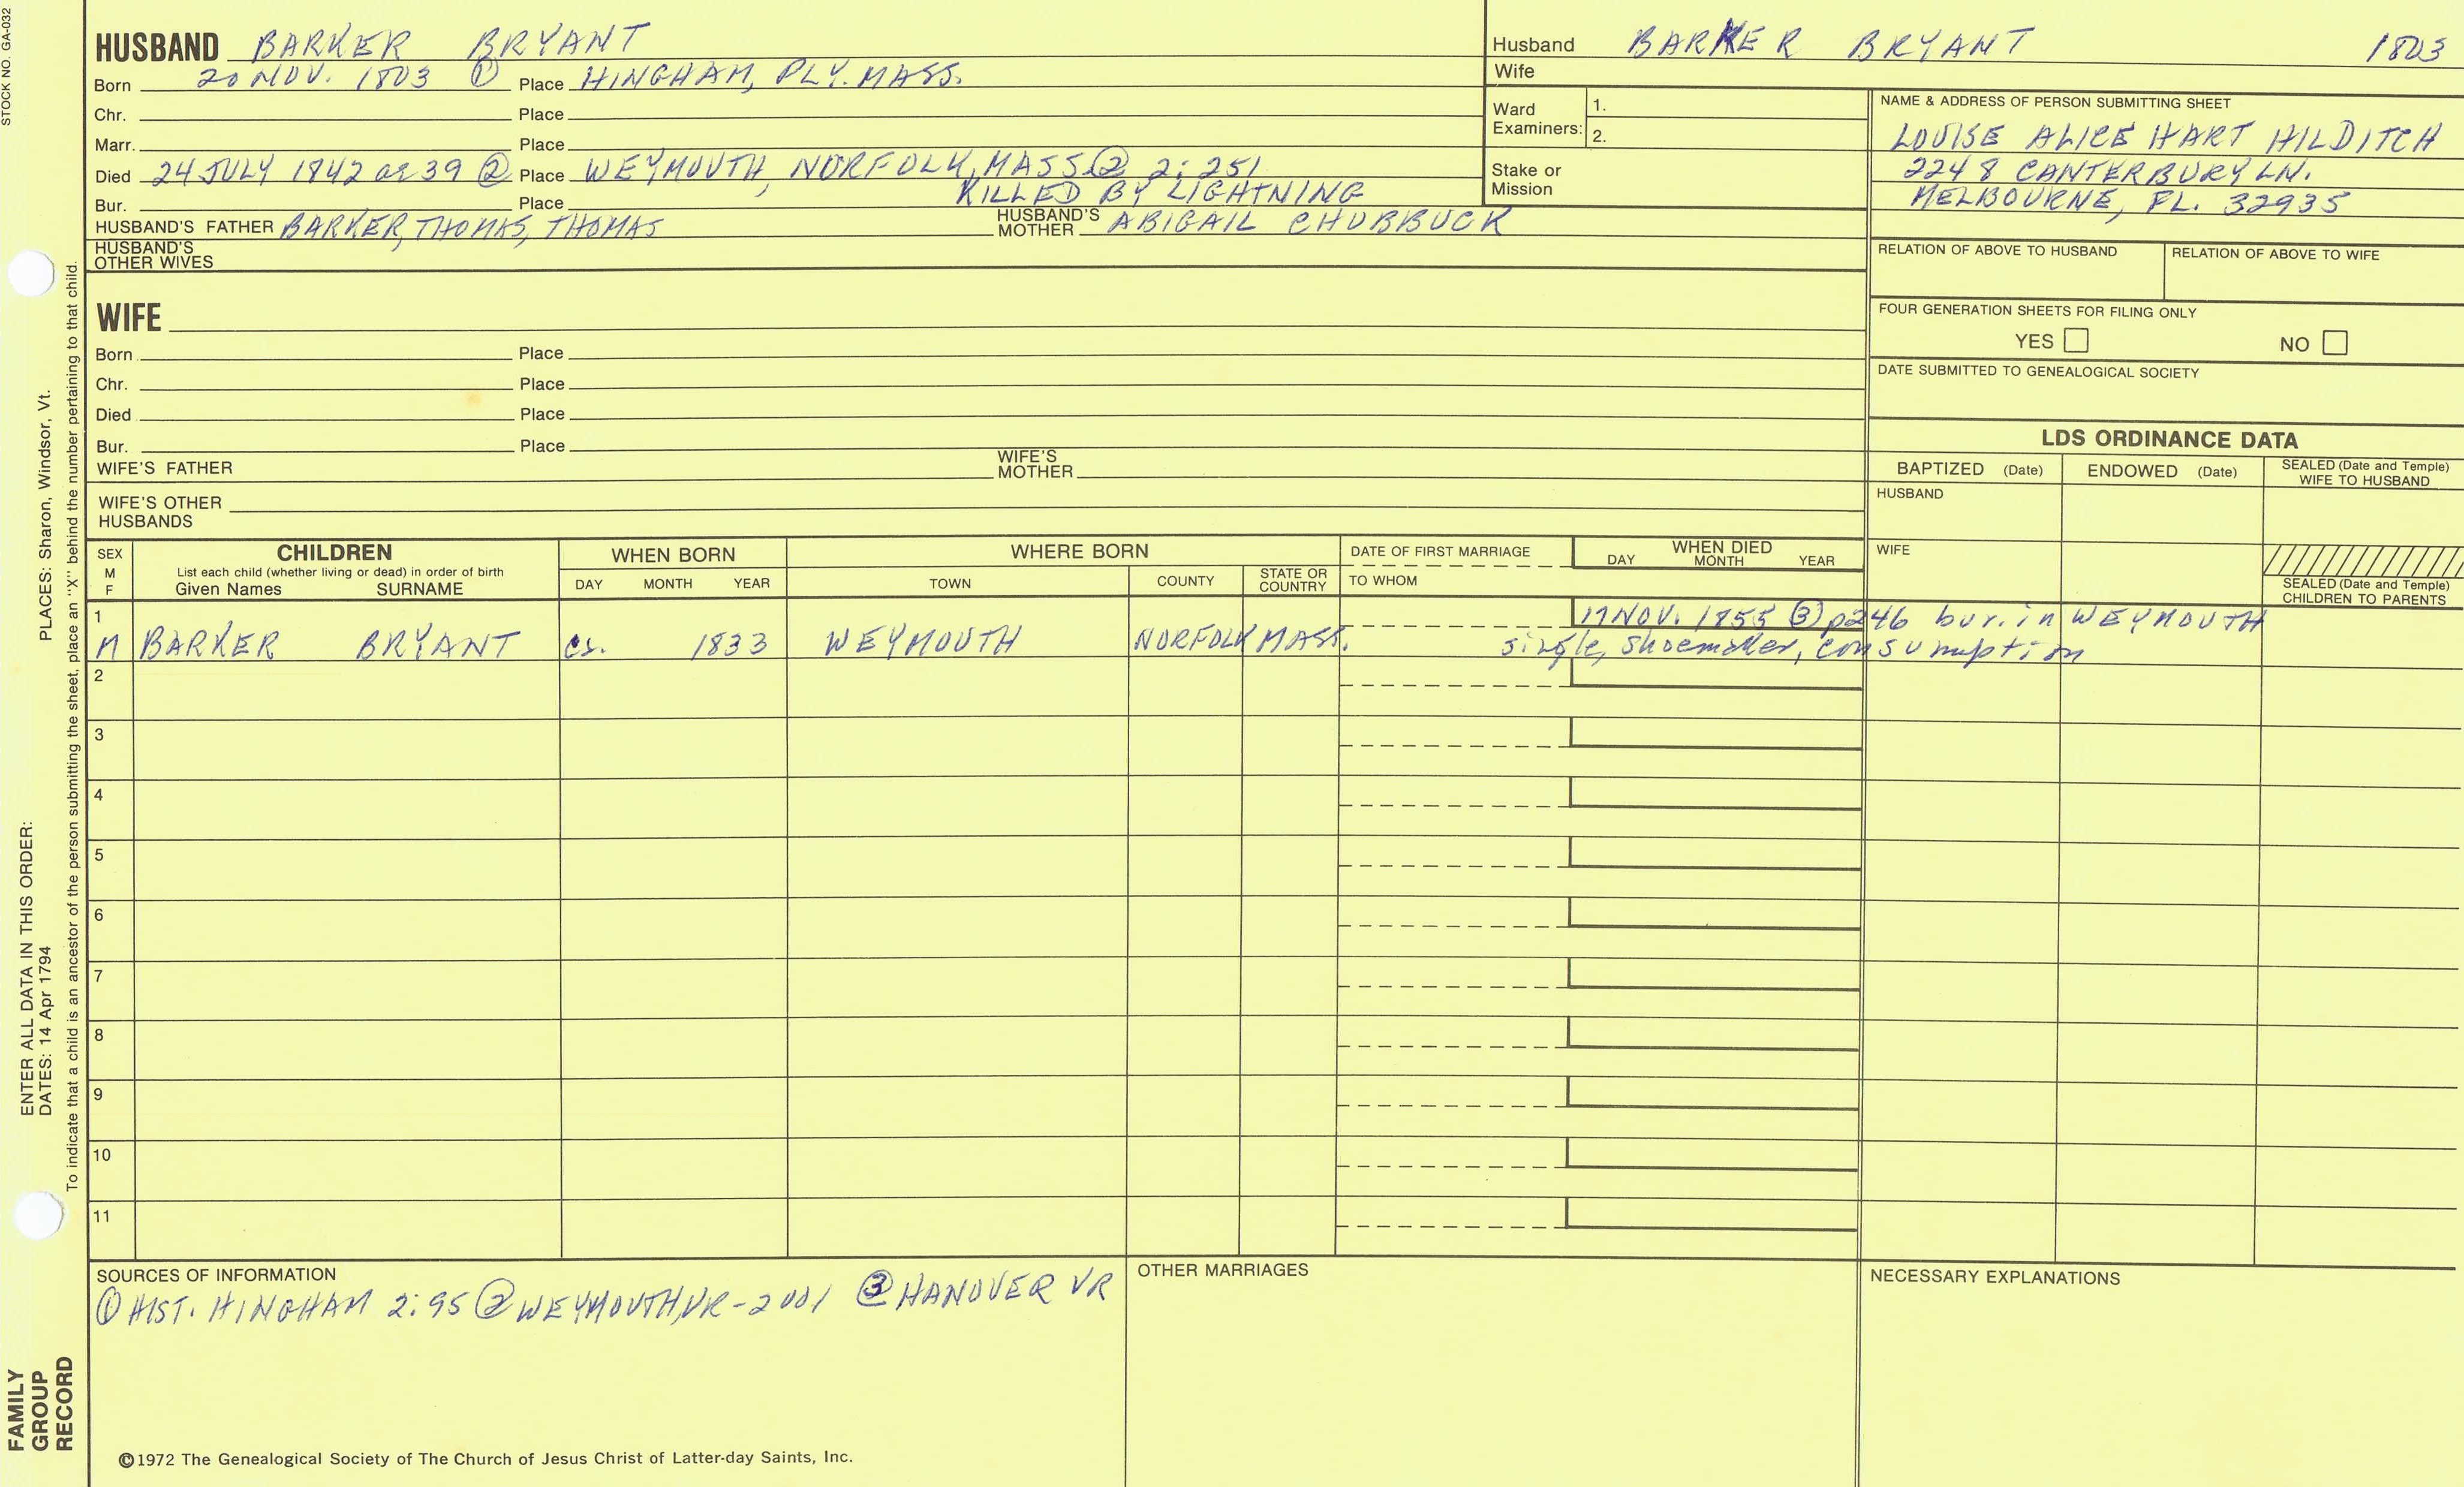 STOCK NO. GA-032
HUSBAND BARKER BRYANT
Born 20 NOV. 1803 ① Place HINGHAM, PLY. MASS.
Chr. Place
Marr. Place
Died 24 JULY 1842 ae 39 ② Place WEYMOUTH, NORFOLK, MASS. ② 2: 251
KILLED BY LIGHTNING
Bur. Place
HUSBAND'S FATHER BARKER, THOMAS, THOMAS HUSBAND'S MOTHER ABIGAIL CHUBBUCK
HUSBAND'S OTHER WIVES
WIFE
Born Place
Chr. Place
Died Place
Bur. Place
WIFE'S FATHER WIFE'S MOTHER
WIFE'S OTHER HUSBANDS
Husband BARKER BRYANT 1803
Wife
Ward Examiners: 1.
2.
Stake or Mission
NAME & ADDRESS OF PERSON SUBMITTING SHEET
LOUISE ALICE HART HILDITCH
2248 CANTERBURY LN.
MELBOURNE, FL. 32935
RELATION OF ABOVE TO HUSBAND RELATION OF ABOVE TO WIFE
FOUR GENERATION SHEETS FOR FILING ONLY
YES NO
DATE SUBMITTED TO GENEALOGICAL SOCIETY
LDS ORDINANCE DATA
BAPTIZED (Date) ENDOWED (Date) SEALED (Date and Temple) WIFE TO HUSBAND
HUSBAND
WIFE
SEALED (Date and Temple) CHILDREN TO PARENTS
SEX M F
CHILDREN
List each child (whether living or dead) in order of birth
Given Names SURNAME
WHEN BORN
DAY MONTH YEAR
WHERE BORN
TOWN COUNTY STATE OR COUNTRY
DATE OF FIRST MARRIAGE
TO WHOM
WHEN DIED
DAY MONTH YEAR
1 17 NOV. 1855 ③ p246 bur. in WEYMOUTH
M BARKER BRYANT ca. 1833 WEYMOUTH NORFOLK MASS. single, shoemaker, consumption
2
3
4
5
6
7
8
9
10
11
SOURCES OF INFORMATION
① HIST. HINGHAM 2:95 ② WEYMOUTH, VR-2001 ③ HANOVER VR
OTHER MARRIAGES
NECESSARY EXPLANATIONS
©1972 The Genealogical Society of The Church of Jesus Christ of Latter-day Saints, Inc.
FAMILY
GROUP
RECORD
ENTER ALL DATA IN THIS ORDER:
DATES: 14 Apr 1794 PLACES: Sharon, Windsor, Vt.
To indicate that a child is an ancestor of the person submitting the sheet, place an "X" behind the number pertaining to that child.